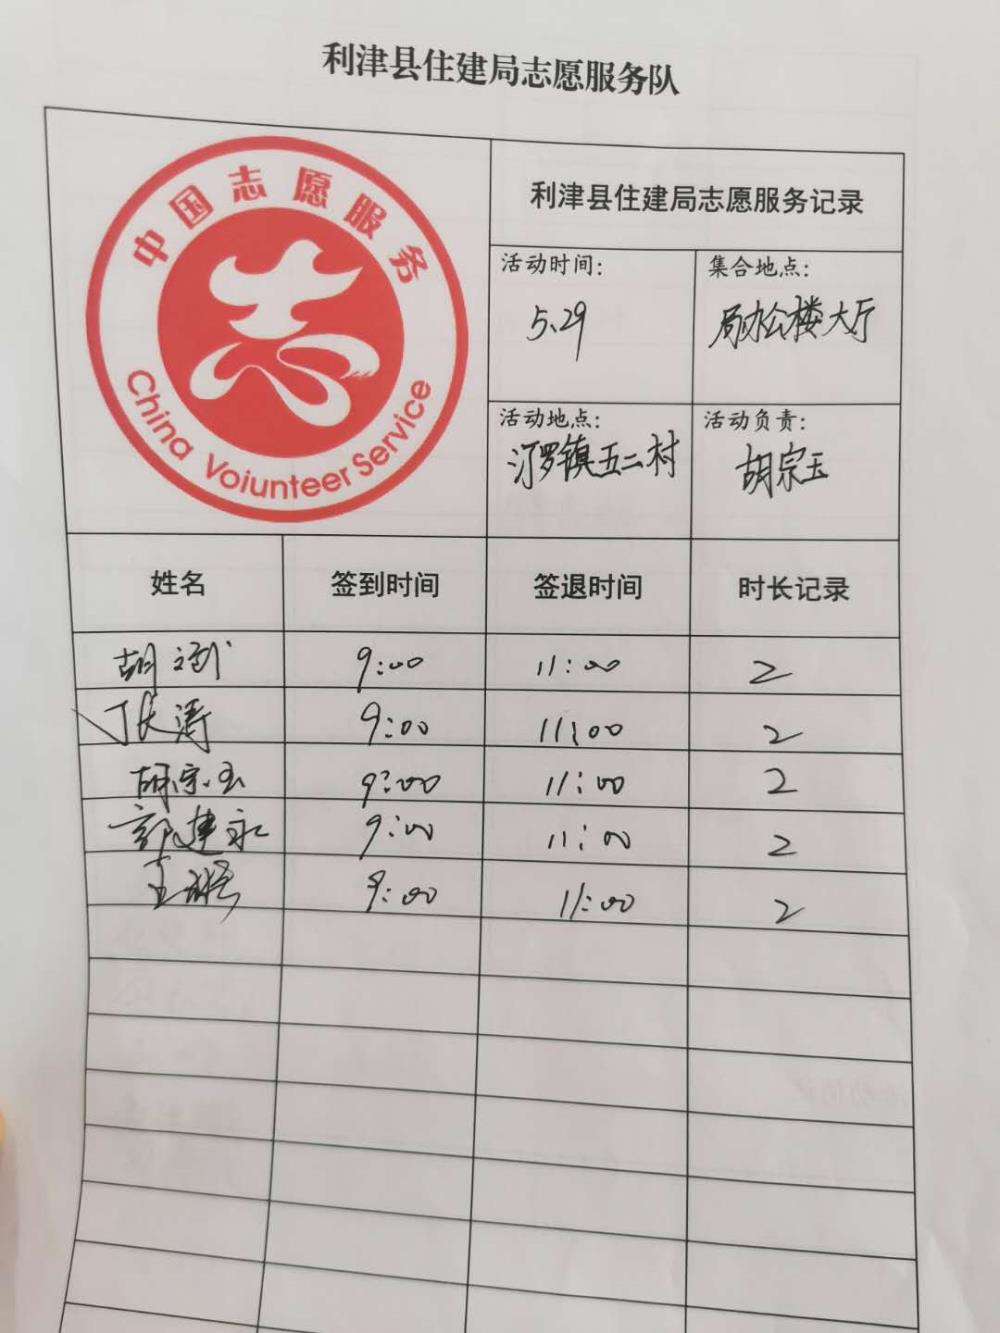 利津县住建局志愿服务队
中国志愿服务
China Voiunteer Service
利津县住建局志愿服务记录
活动时间: 集合地点:
5.29 局办公楼大厅
活动地点: 活动负责:
汀罗镇五二村 胡宗玉
姓名 签到时间 签退时间 时长记录
胡 9:00 11:00 2
张涛 9:00 11:00 2
胡宗玉 9:00 11:00 2
郭建永 9:00 11:00 2
王 9:00 11:00 2